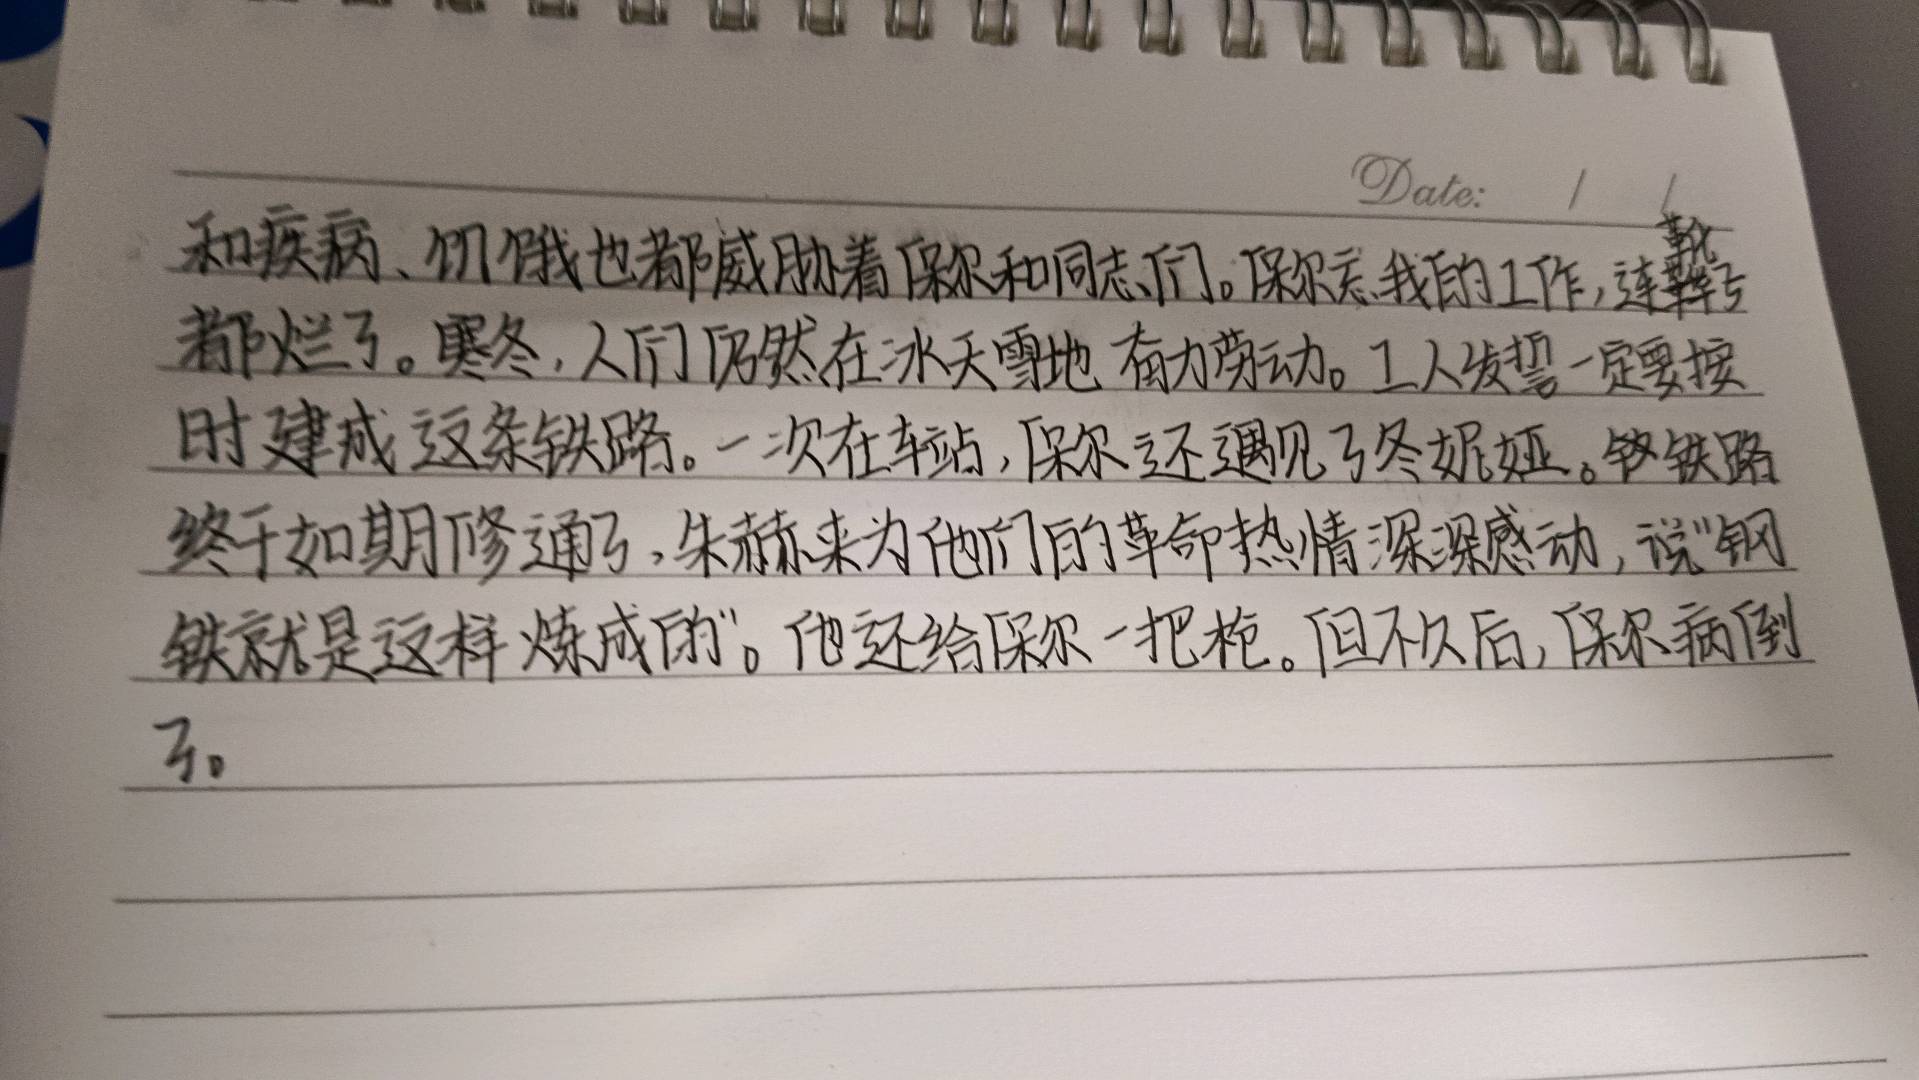 Date: / /
和疾病、饥饿也都威胁着保尔和同志们。保尔忘我的工作，连靴子
都烂了。寒冬，人们仍然在冰天雪地奋力劳动。工人发誓一定要按
时建成这条铁路。一次在车站，保尔还遇见了冬妮娅。铁路
终于如期修通了，朱赫来为他们的革命热情深深感动，说“钢
铁就是这样炼成的”。他还给保尔一把枪。但不久后，保尔病倒
了。